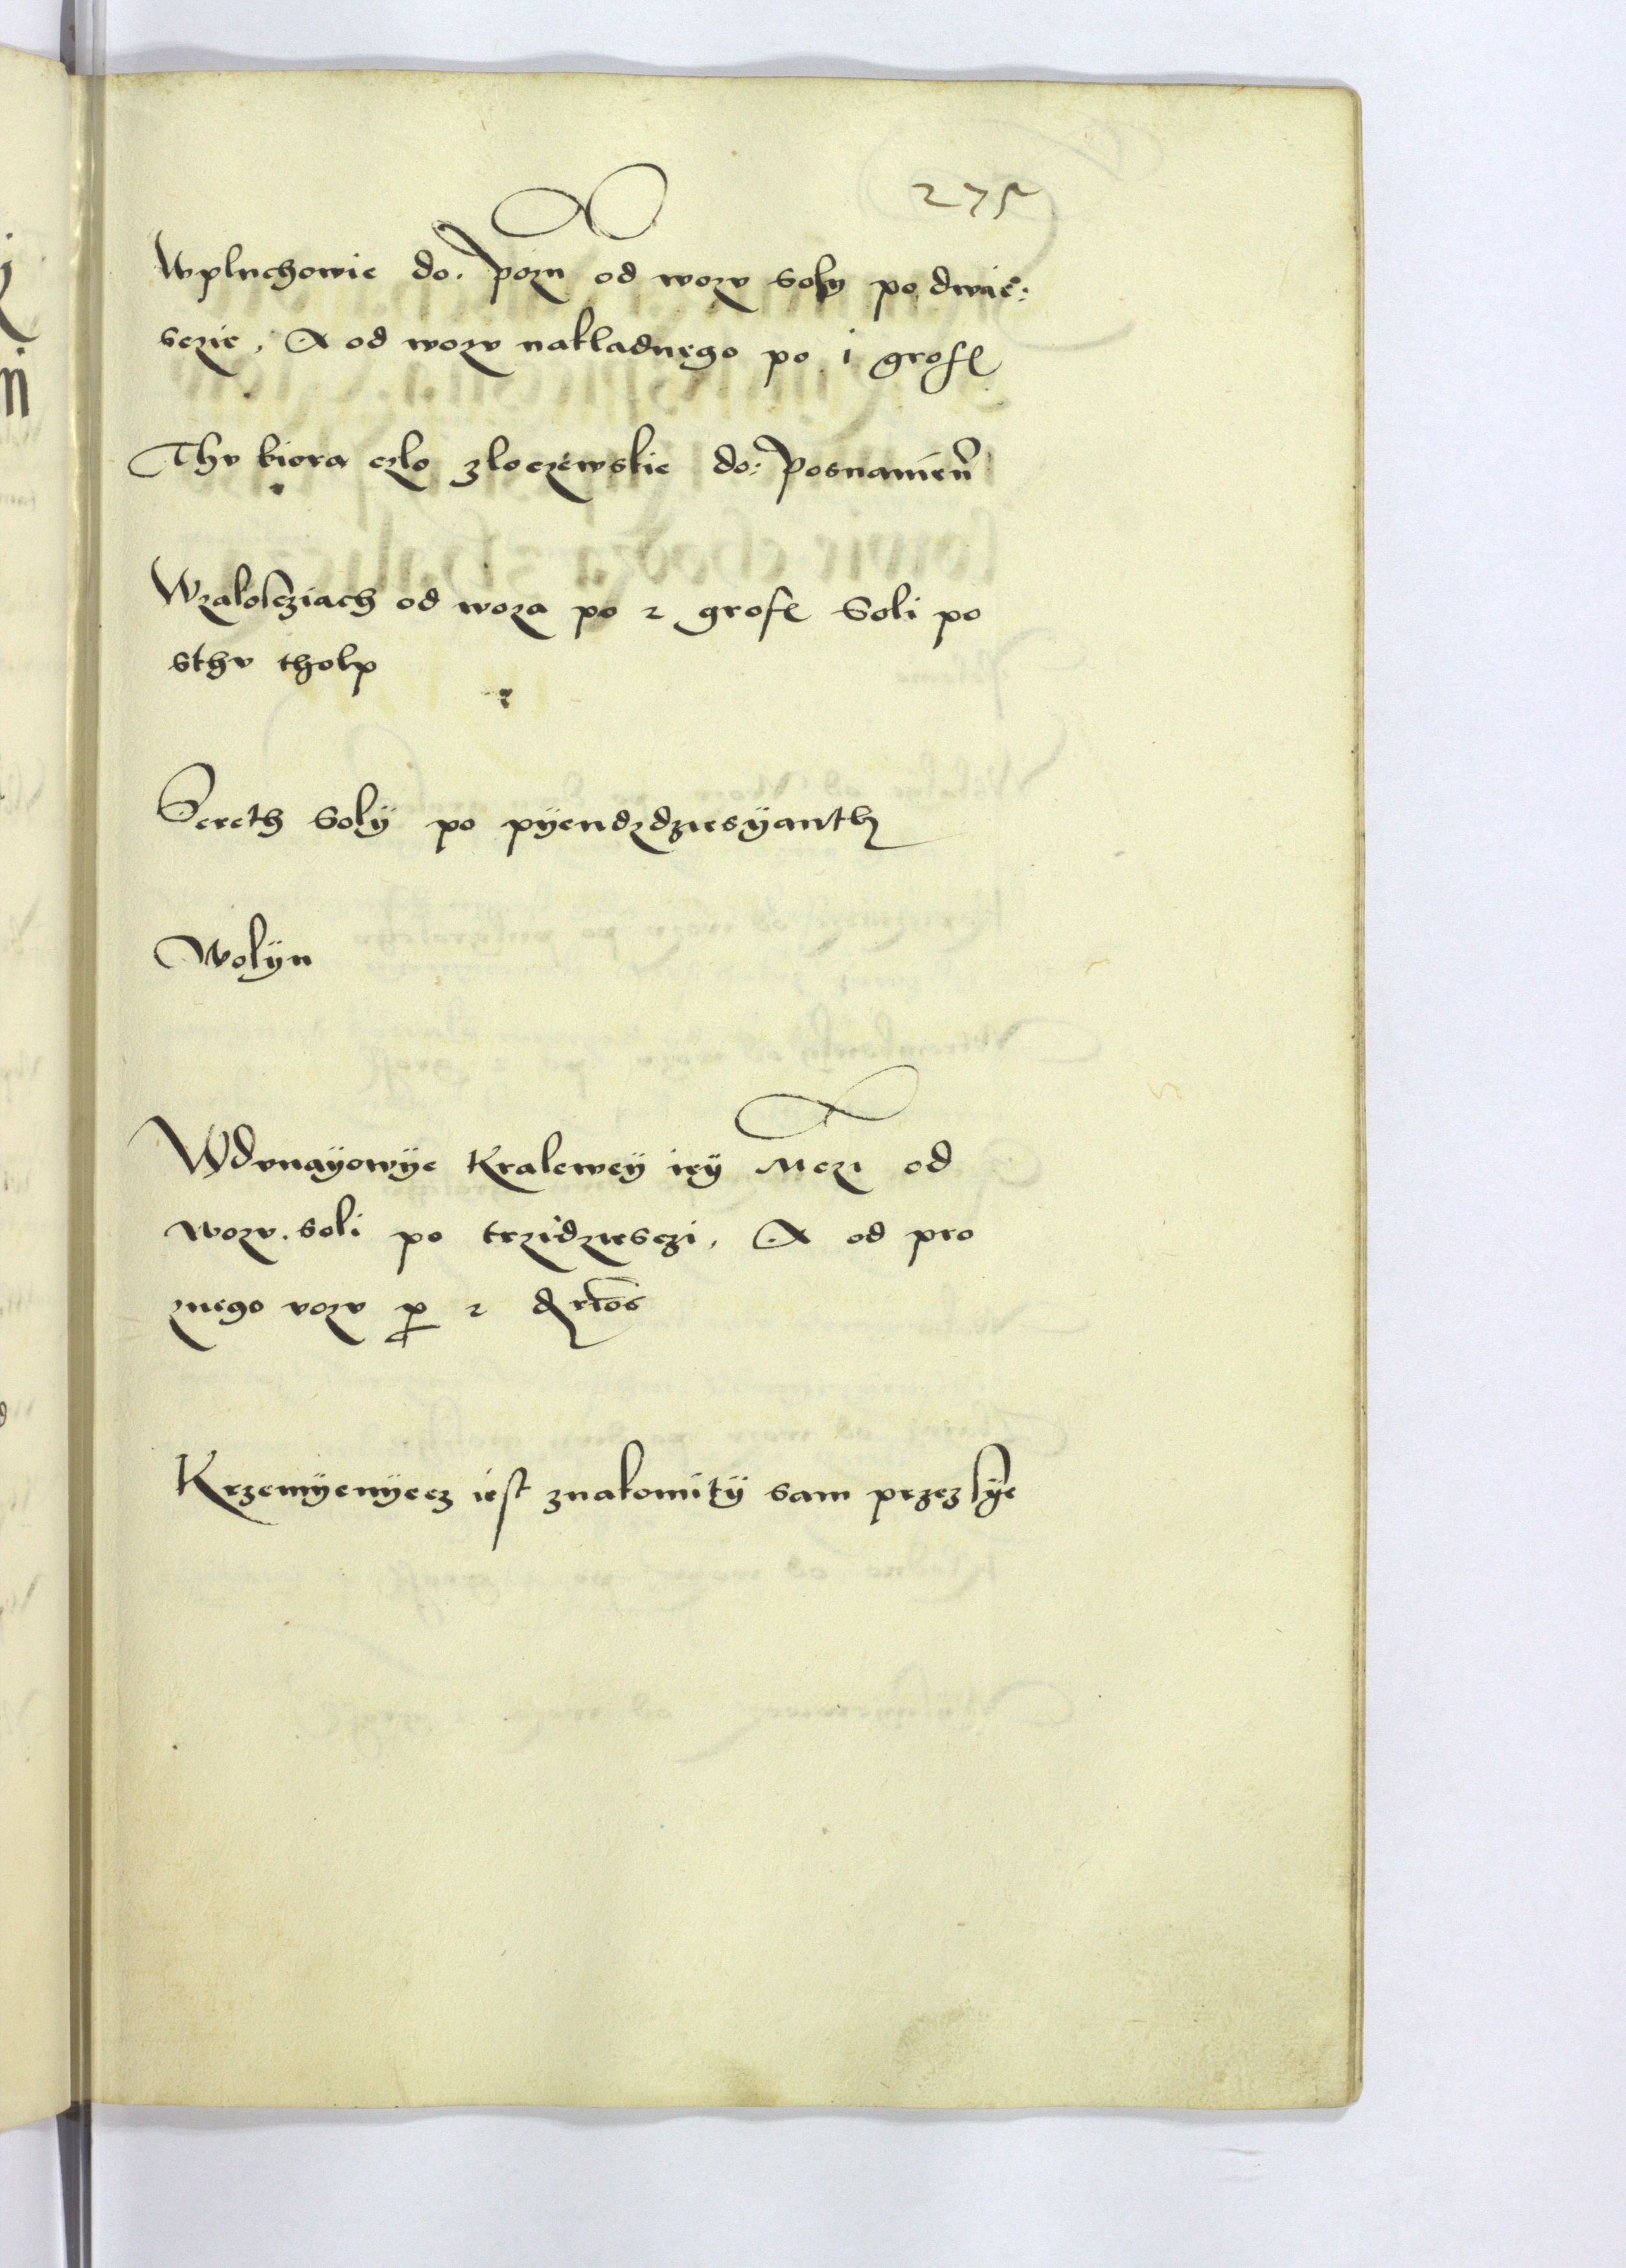 275
Wpluchowie do. pozn od wozv soly po dwie:
sczie, A od wozv nakładnego po 1 grose
Thv biora czlo zloczewskie do: Posnanien
Wzalosziach od woza po 2 grose Soli po
sthv tholp
Sereth Solÿ po pÿendzdziesÿanth
Wolÿn
Wdvnaÿowÿe Kraleweÿ ieÿ Mczi od
wozv. soli po trzidziesczi, A od pro
znego vozv po 2 qrtos
Krzemÿenÿecz iest znakomitÿ sam przez sÿe